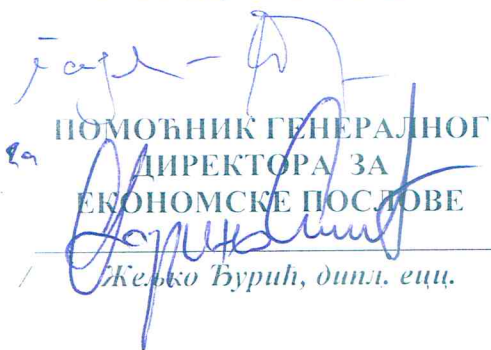 за
ПОМОЋНИК ГЕНЕРАЛНОГ
ДИРЕКТОРА ЗА
ЕКОНОМСКЕ ПОСЛОВЕ
Жељко Ђурић, дипл. ецц.